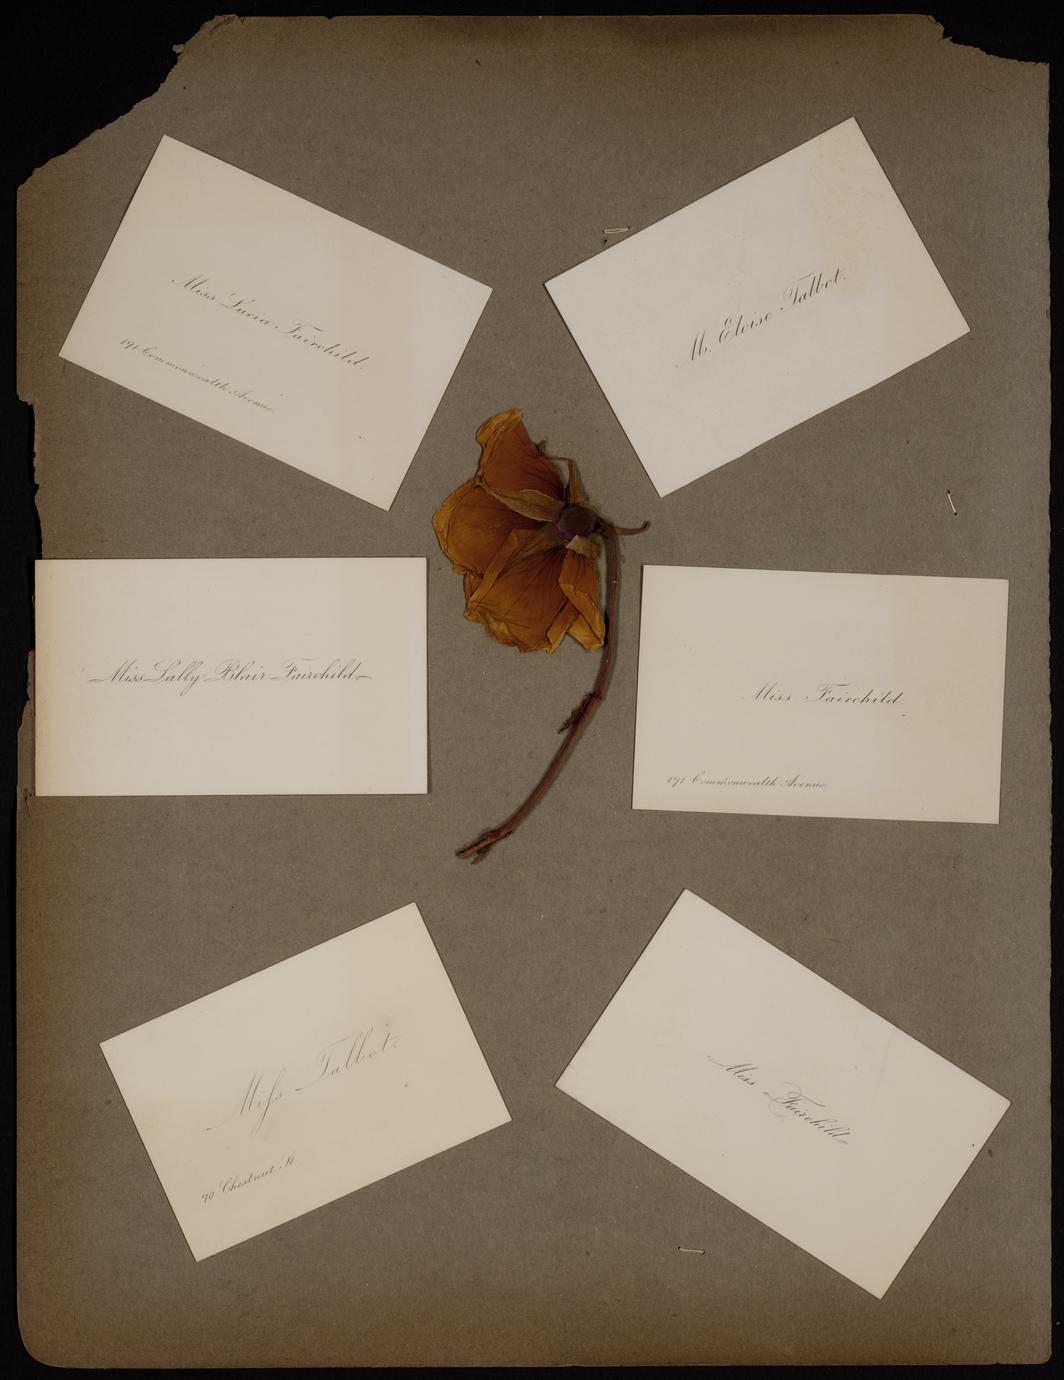 Miss Lucia Fairchild.
191 Commonwealth Avenue.
M. Eloise Talbot.
Miss Sally Blair Fairchild
Miss Fairchild.
191 Commonwealth Avenue
Miss Talbot.
70 Chestnut St.
Miss Fairchild